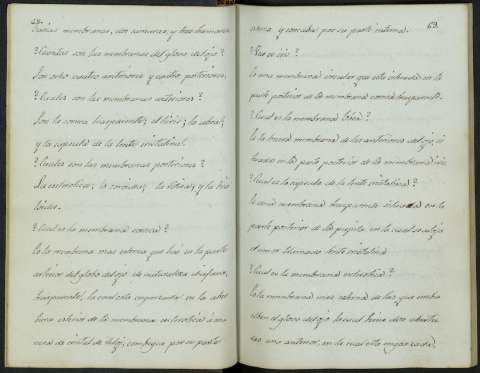 varias membranas, dos camaras, y tres humores
? Cuales son las membranas del globo del ojo?
Son ocho cuatro anteriores y cuatro posteriores.
? Cuales son las membranas anteriores?
Son la cornea trasparente; el iris; la uvea;
y la capsula de la lente cristalina.
? Cuales son las membranas posteriores?
La esclerotica; la coroides; la retina; y la hia
loides.
? Cual es la membrana cornea?
Es la membrana mas externa que hai en la parte
anterior del globo del ojo de naturaleza
trasparente, la cual esta engastada en la aber
tura anterior de la membrana esclerotica á ma
nera de cristal de reloj; convexa por su parte
63.
externa y concava por su parte interna.
? Que es iris?
Es una membrana circular que esta situada en la
parte posterior de la membrana cornea trasparente.
? Cual es la membrana Ubea?
Es la tercera membrana de las anteriores del ojo, si
tuada en la parte posterior de la membrana iris
? Cual es la capsula de la lente cristalina?
Es una membrana trasparente situada en la
parte posterior de la pupila en la cual se aloja
el umor llamado lente cristalina
? Cual es la membrana esclerotica?
Es la membrana mas esterna de las que embu
elben el globo del ojo la cual tiene dos abertu
ras una anterior, en la cual esta engarzada